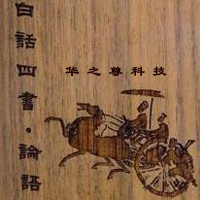 白話四書·論語
华之尊科技